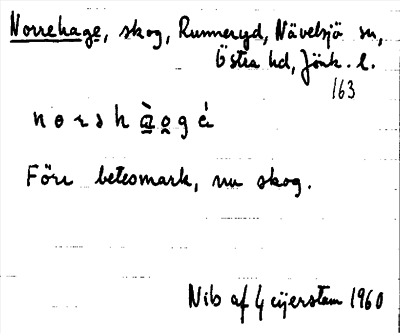 Norrehage, skog, Runneryd, Nävelsjö sn,
Östra hd, Jönk. l.
163
n o r s h à̲ o̲ g é
Förr betesmark, nu skog.
Nib af Geijerstam 1960